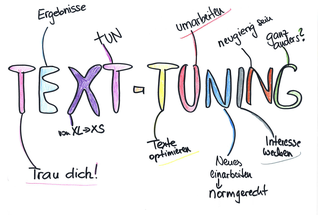 Ergebnisse
tUN
umarbeiten
neugierig sein
ganz
anders?
TEXT-TUNING
von XL→XS
Trau dich!
Texte
optimieren
Neues
einarbeiten
normgerecht
Interesse
wecken